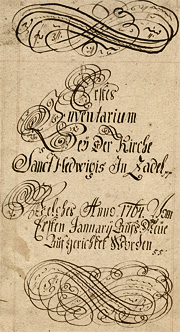 Erstes
Inventarium
Bey der Kirche
Sanct Hedwigis In Zadel
Welches Anno 1701 Vom
Ersten January Auffs Neüe
Auffgerichtet Worden